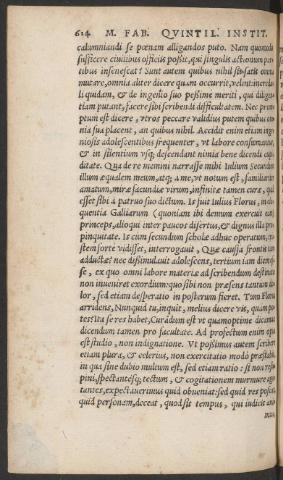 614 M. FAB. QVINTIL. INSTIT.
calumniandi se pœnam alligandos puto. Nam quomodo
sufficere ciuilibus officiis possit, qui singulis actionum par-
tibus insenescat? Sunt autem quibus nihil sit satis: omnia
mutare, omnia aliter dicere quàm occurrit, uelint: increduli
quidam, & de ingenio suo pessime meriti, qui diligen-
tiam putant, facere sibi scribendi difficultatem. Nec prom-
ptum est dicere, vtros peccare validius putem quibus om-
nia sua placent, an quibus nihil. Accidit enim etiam inge-
niosis adolescentibus frequenter, vt labore consumantur,
& in silentium vsque descendant nimia bene dicendi cupi-
ditate. Qua de re memini narrasse mihi Iulium Secundum
illum æqualem meum, atque à me, vt notum est, familiariter
amatum, miræ facundiæ virum, infinitæ tamen curæ, quid
esset sibi à patruo suo dictum. Is fuit Iulius Florus, in elo-
quentia Galliarum (quoniam ibi demum exercuit eam)
princeps, alioqui inter paucos disertus, & dignus illa pro-
pinquitate. Is cùm Secundum scholæ adhuc operatum, tri-
stem forte vidisset, interrogauit, Quæ caussa frontis tam
adductæ? nec dissimulauit adolescens, tertium iam diem es-
se, ex quo omni labore materiæ ad scribendum destinatæ
non inueniret exordium: quo sibi non præsens tantum do-
lor, sed etiam desperatio in posterum fieret. Tum Florus
arridens, Nunquid tu, inquit, melius dicere vis, quàm po-
tes? Ita se res habet, Curandum est vt quàmoptime dicamus:
dicendum tamen pro facultate. Ad profectum enim opus
est studio, non indignatione. Vt possimus autem scribere
etiam plura, & celerius, non exercitatio modò præstabit,
in qua sine dubio multum est, sed etiam ratio: si non resu-
pini, spectantésque tectum, & cogitationem murmure agi-
tantes, expectauerimus quid obueniat: sed quid res poscat,
quid personam deceat, quod sit tempus, qui iudicis ani-